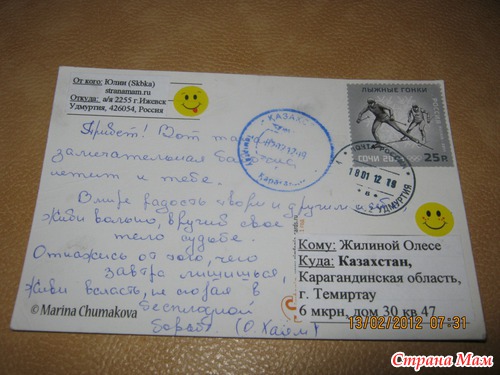 От кого: Юлии (Skbka)
stranamam.ru
Откуда: а/я 2255 г.Ижевск
Удмуртия, 426054, Россия
ЛЫЖНЫЕ ГОНКИ
РОССИЯ
СОЧИ
25 Р
КАЗАХС
Караган
ПОЧТА РОССИИ
18 01 12 18
УДМУРТИЯ
Привет! Вот такая
замечательная
летит к тебе.
В мире радость твори и другим и себе
Живи вольно, вручив свое
тело судьбе.
Откажись от того, чего
завтра лишишься,
Живи всласть, не сгорая в
бесплодной
борьбе. (О. Хайям)
Кому: Жилиной Олесе
Куда: Казахстан,
Карагандинская область,
г. Темиртау
6 мкрн, дом 30 кв 47
© Marina Chumakova
13/02/2012 07:31
Страна Мам